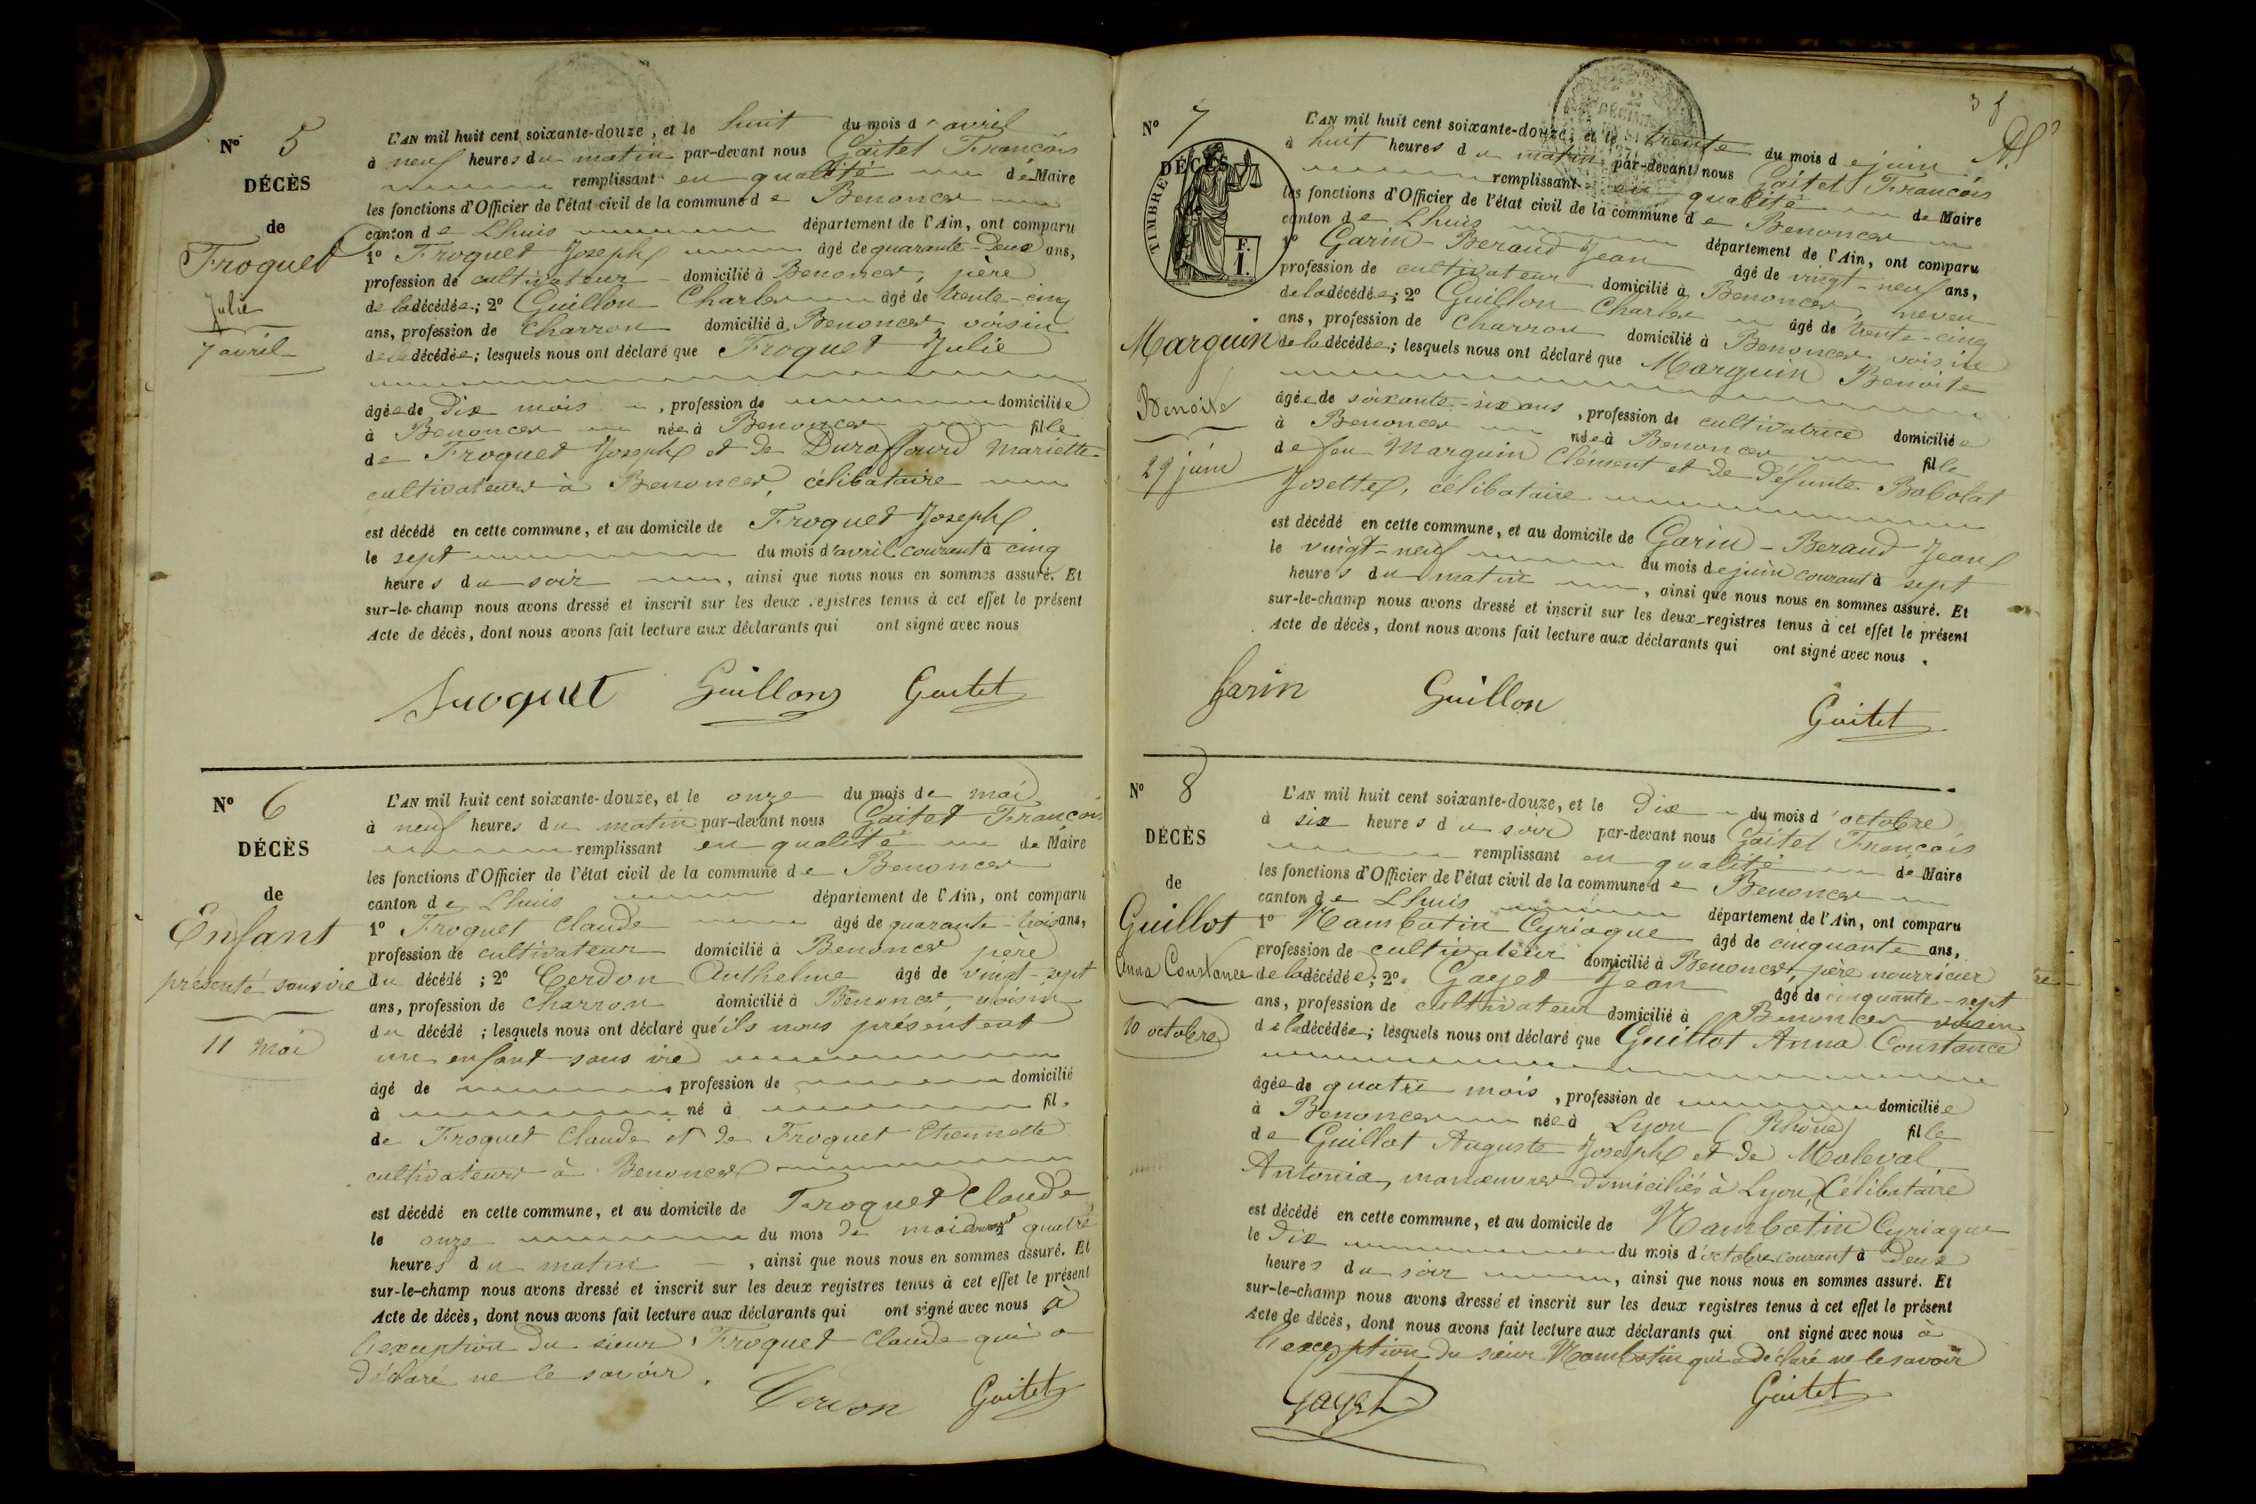 N° 5
DÉCÈS
de
Froquet
Julie
7 avril
L'AN mil huit cent soixante-douze, et le huit du mois d'avril
à neuf heures du matin par-devant nous Gaitet François
remplissant en qualité de Maire
les fonctions d'Officier de l'état civil de la commune de Benonces
canton de Lhuis département de l'Ain, ont comparu
1° Froquet Joseph âgé de quarante-deux ans,
profession de cultivateur domicilié à Benonces, père
de la décédée; 2° Guillon Charles âgé de trente-cinq
ans, profession de charron domicilié à Benonces voisin
de la décédée; lesquels nous ont déclaré que Froquet Julie
âgée de dix mois, profession de domiciliée
à Benonces née à Benonces fille
de Froquet Joseph et de Duroffourd Mariette
cultivateurs à Benonces, célibataire
est décédé en cette commune, et au domicile de Froquet Joseph
le sept du mois d'avril courant à cinq
heures du soir, ainsi que nous nous en sommes assuré. Et
sur-le-champ nous avons dressé et inscrit sur les deux registres tenus à cet effet le présent
Acte de décès, dont nous avons fait lecture aux déclarants qui ont signé avec nous
Froquet Guillon Gaitet
N° 6
DÉCÈS
de
Enfant
présenté sans vie
11 mai
L'AN mil huit cent soixante-douze, et le onze du mois de mai
à neuf heures du matin par-devant nous Gaitet François
remplissant en qualité de Maire
les fonctions d'Officier de l'état civil de la commune de Benonces
canton de Lhuis département de l'Ain, ont comparu
1° Froquet Claude âgé de quarante-trois ans,
profession de cultivateur domicilié à Benonces père
du décédé; 2° Cerdon Anthelme âgé de vingt-sept
ans, profession de charron domicilié à Benonces voisin
du décédé; lesquels nous ont déclaré qu'ils nous présentent
un enfant sans vie
âgé de profession de domicilié
à né à fil.
de Froquet Claude et de Froquet Etiennette
cultivateurs à Benonces
est décédé en cette commune, et au domicile de Froquet Claude
le onze du mois de mai courant quatre
heures du matin, ainsi que nous nous en sommes assuré. Et
sur-le-champ nous avons dressé et inscrit sur les deux registres tenus à cet effet le présent
Acte de décès, dont nous avons fait lecture aux déclarants qui ont signé avec nous à
l'exception du sieur Froquet Claude qui a
déclaré ne le savoir.
Cerdon Gaitet
N° 7
DÉCÈS
TIMBRE
F. I.
Marguin
Benoite
29 juin
L'AN mil huit cent soixante-douze, et le trente du mois de juin
à huit heures du matin par-devant nous Gaitet François
remplissant en qualité de Maire
les fonctions d'Officier de l'état civil de la commune de Benonces
canton de Lhuis département de l'Ain, ont comparu
1° Garin-Beraud Jean âgé de vingt-neuf ans,
profession de cultivateur domicilié à Benonces, neveu
de la décédée; 2° Guillon Charles âgé de trente-cinq
ans, profession de charron domicilié à Benonces voisin
de la décédée; lesquels nous ont déclaré que Marguin Benoite
âgée de soixante-six ans, profession de cultivatrice domiciliée
à Benonces née à Benonces fille
de feu Marguin Clément et de défunte Babolat
Josette, célibataire
est décédé en cette commune, et au domicile de Garin-Beraud Jean
le vingt-neuf du mois de juin courant à sept
heures du matin, ainsi que nous nous en sommes assuré. Et
sur-le-champ nous avons dressé et inscrit sur les deux registres tenus à cet effet le présent
Acte de décès, dont nous avons fait lecture aux déclarants qui ont signé avec nous.
Garin Guillon Gaitet
N° 8
DÉCÈS
de
Guillot
Anna Constance
10 octobre
L'AN mil huit cent soixante-douze, et le dix du mois d'octobre
à six heures du soir par-devant nous Gaitet François
remplissant en qualité de Maire
les fonctions d'Officier de l'état civil de la commune de Benonces
canton de Lhuis département de l'Ain, ont comparu
1° Nambotin Cyriaque âgé de cinquante ans,
profession de cultivateur domicilié à Benonces, père nourricier
de la décédée; 2° Gayet Jean âgé de cinquante-sept
ans, profession de cultivateur domicilié à Benonces voisin
de la décédée; lesquels nous ont déclaré que Guillot Anna Constance
âgée de quatre mois, profession de domiciliée
à Benonces née à Lyon (Rhône) fille
de Guillot Auguste Joseph et de Maleval
Antonia, manœuvres domiciliés à Lyon, Célibataire
est décédé en cette commune, et au domicile de Nambotin Cyriaque
le dix du mois d'octobre courant à deux
heures du soir, ainsi que nous nous en sommes assuré. Et
sur-le-champ nous avons dressé et inscrit sur les deux registres tenus à cet effet le présent
Acte de décès, dont nous avons fait lecture aux déclarants qui ont signé avec nous à
l'exception du sieur Nambotin qui a déclaré ne le savoir
Gayet Gaitet